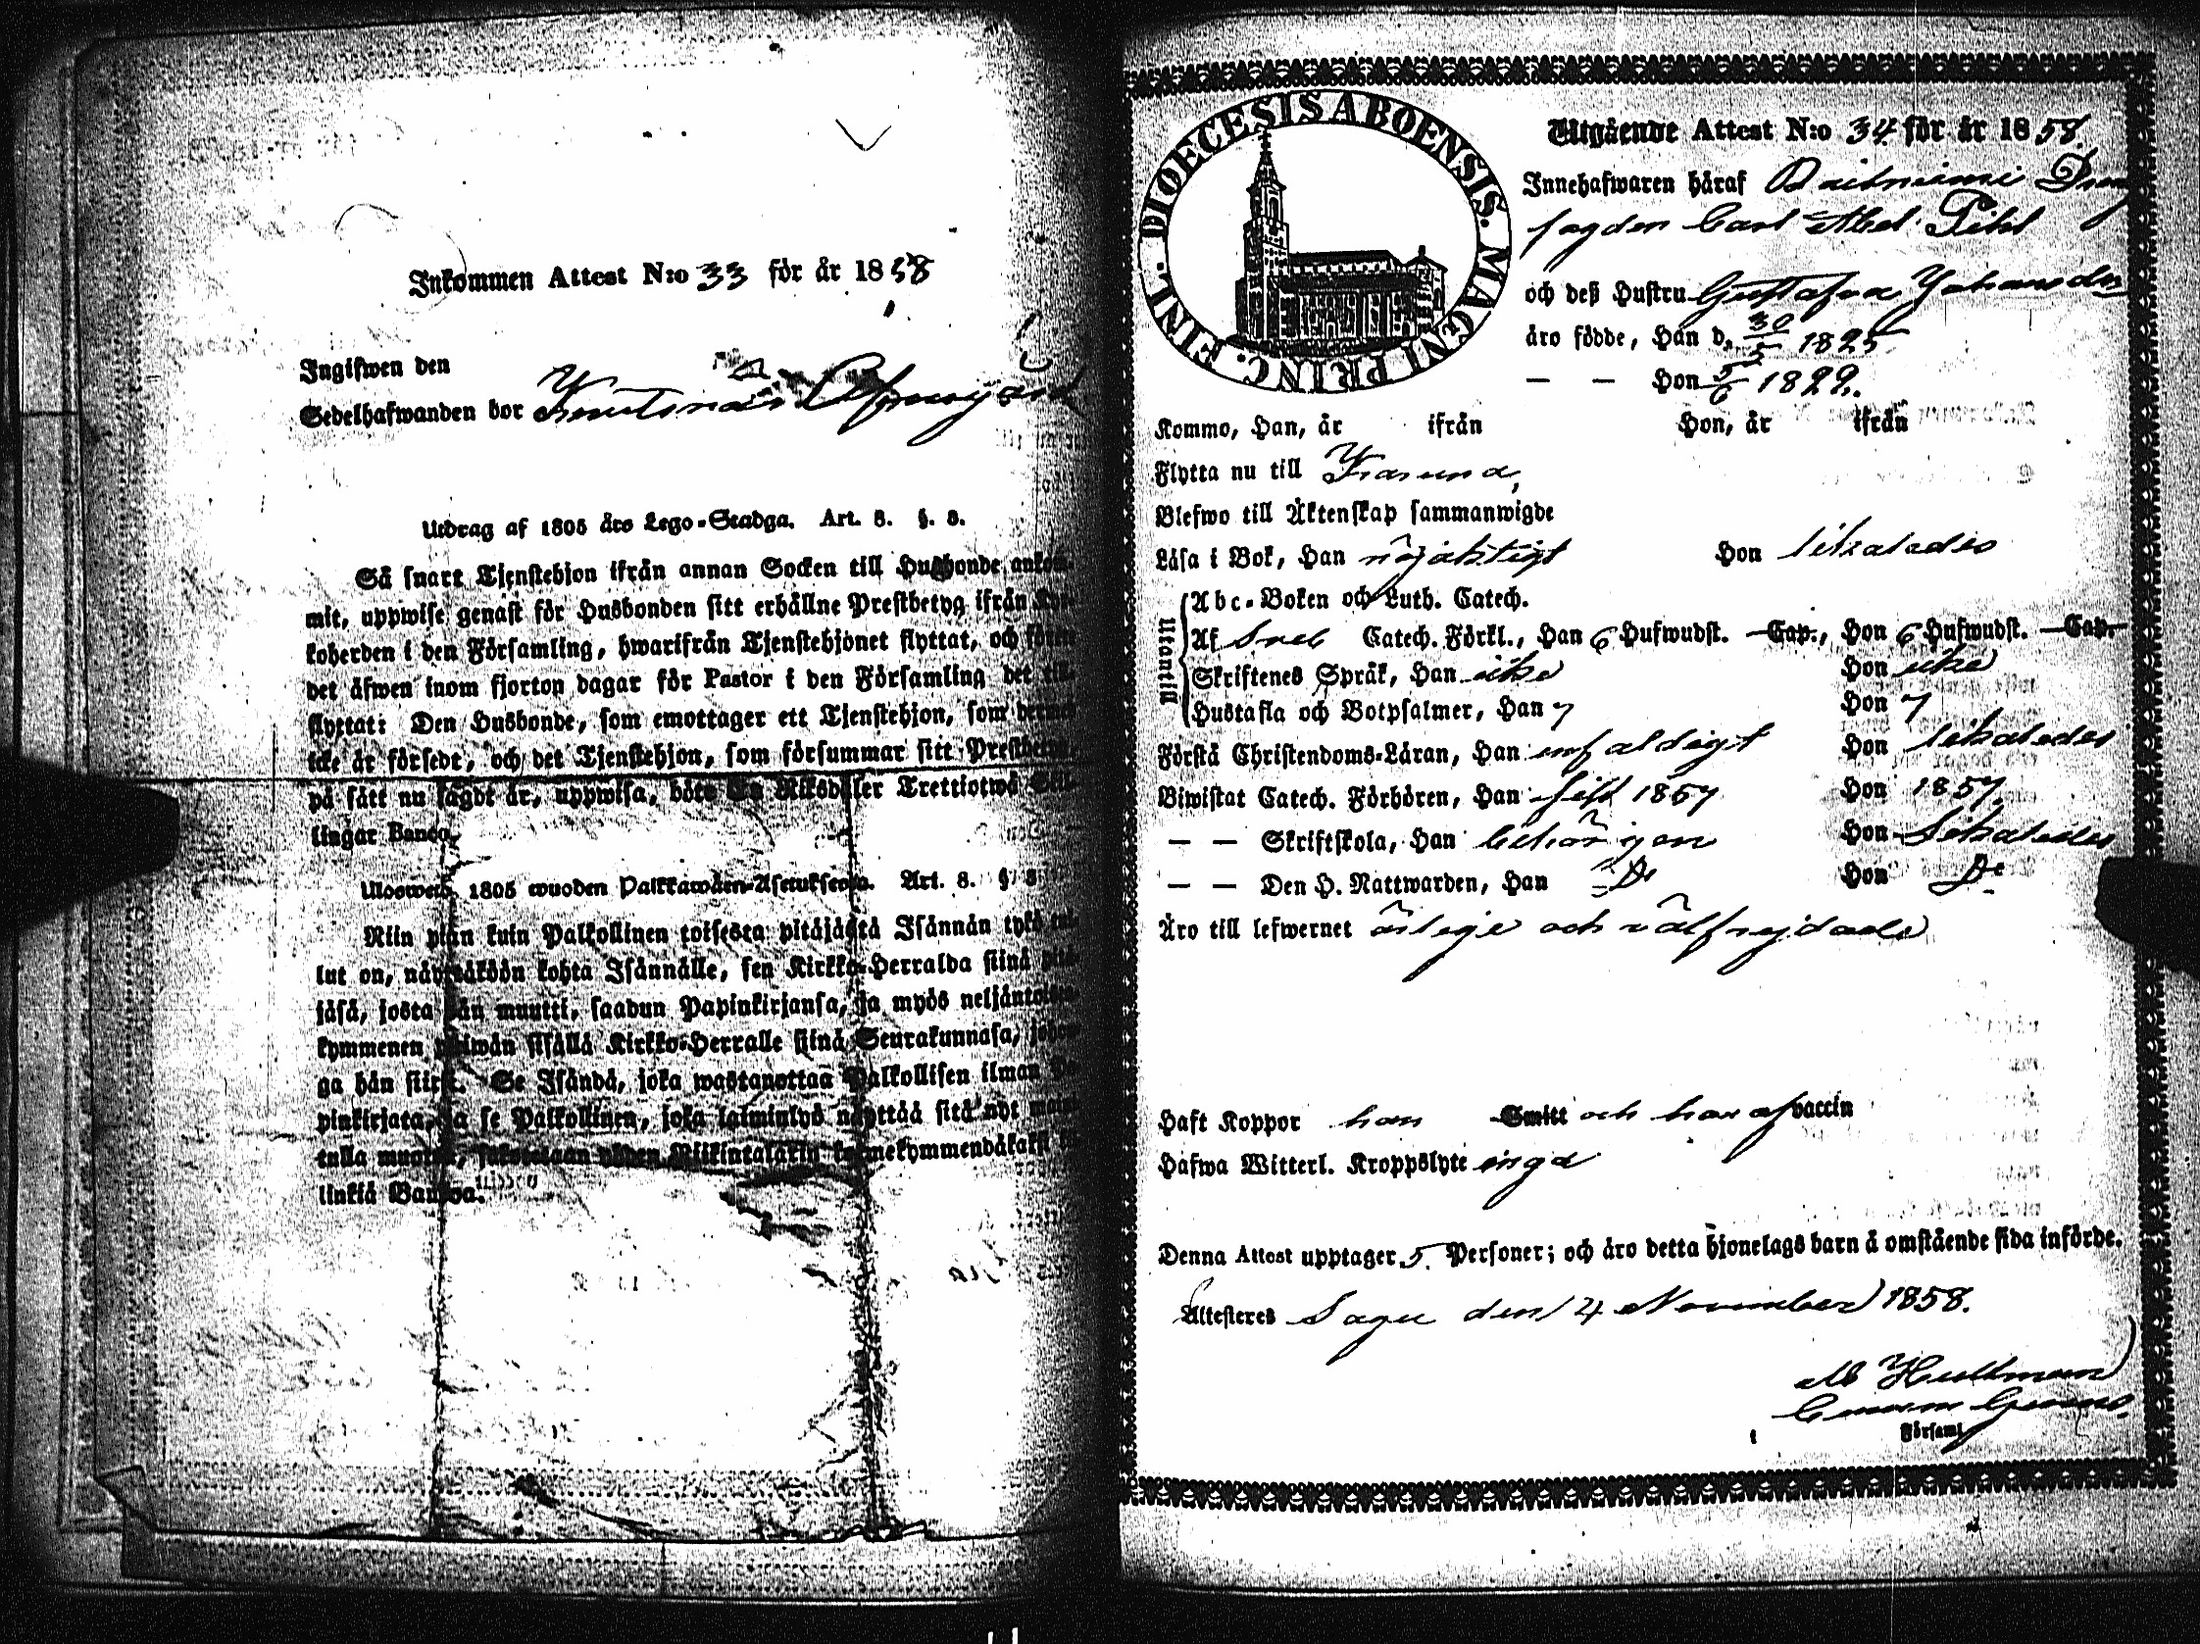 Inkommen Attest N:o 33 för år 1858
Ingifwen den
Sedelhafwanden bor
Utdrag af 1805 års Lego-Stadga. Art. 8. §. 8.
Så snart Tjenstehjon ifrån annan Socken till Husbonde
mit, uppwise genast för Husbonden sitt erhållne Prestbetyg ifrån
koherden i den Församling, hwarifrån Tjenstehjonet flyttat, och
det äfwen inom fjorton dagar för Pastor i den Församling det
flyttat: Den Husbonde, som emottager ett Tjenstehjon, som
icke är försedt, och det Tjenstehjon, som försummar sitt
på sätt nu sagdt är, uppwisa, böte Riksdaler Trettiotwå
lingar Banco.
Uloswets 1805 wuoden Palkkawäen-Asetuksesta. Art. 8. § 8
Niin pian kuin Palkollinen toisesta pitäjästä Isännän tykö
lut on, näyttäköön kohta Isännälle, sen Kirkko-Herralda siinä
jäsä, josta hän muutti, saadun Papinkirjansa, ja myös
kymmenen päiwän sisällä Kirkko-Herralle siinä Seurakunnasa,
ga hän siirsi. Se Isändä, joka wastanottaa Palkollisen ilman
pinkirjata, ja se Palkollinen, joka laiminlyö näyttää sitä nyt
tulla muoton, sakotetaan yhden Riikintalarin
linkiä Bancoa.
DIOECESIS ABOENSIS. MAGNI PRINC. FINL.
Utgående Attest N:o 34 för år 1858.
Innehafwaren häraf
fogden Carl Abel Pihl
och deß Hustru Gustafva Johansdr
äro födde, Han d. 30/5 1825
— — Hon 5/6 1822.
Kommo, Han, år ifrån Hon, år ifrån
Flytta nu till Karuna,
Blefwo till Äktenskap sammanwigde
Läsa i Bok, Han nöjaktigt Hon likaledes
Utantill
Abc-Boken och Luth. Catech.
Af Sveb Catech. Förkl., Han 6 Hufwudst. Cap., Hon 6 Hufwudst. Cap.
Skriftenes Språk, Han icke Hon icke
Hustafla och Botpsalmer, Han 7 Hon 7
Förstå Christendoms-Läran, Han enfaldigt Hon likaledes
Biwistat Catech. Förhören, Han sist 1857 Hon 1857.
— — Skriftskola, Han behörigen Hon likaledes
— — Den H. Nattwarden, Han Do Hon Do
Äro till lefwernet ärlige och välfrejdade
Haft Koppor han Smitt och hon af vaccin
Hafwa Witterl. Kroppslyte inga
Denna Attest upptager 5 Personer; och äro detta hjonelags barn å omstående sida införde.
Attesteres Sagu den 4 November 1858.
Hultman
Församl